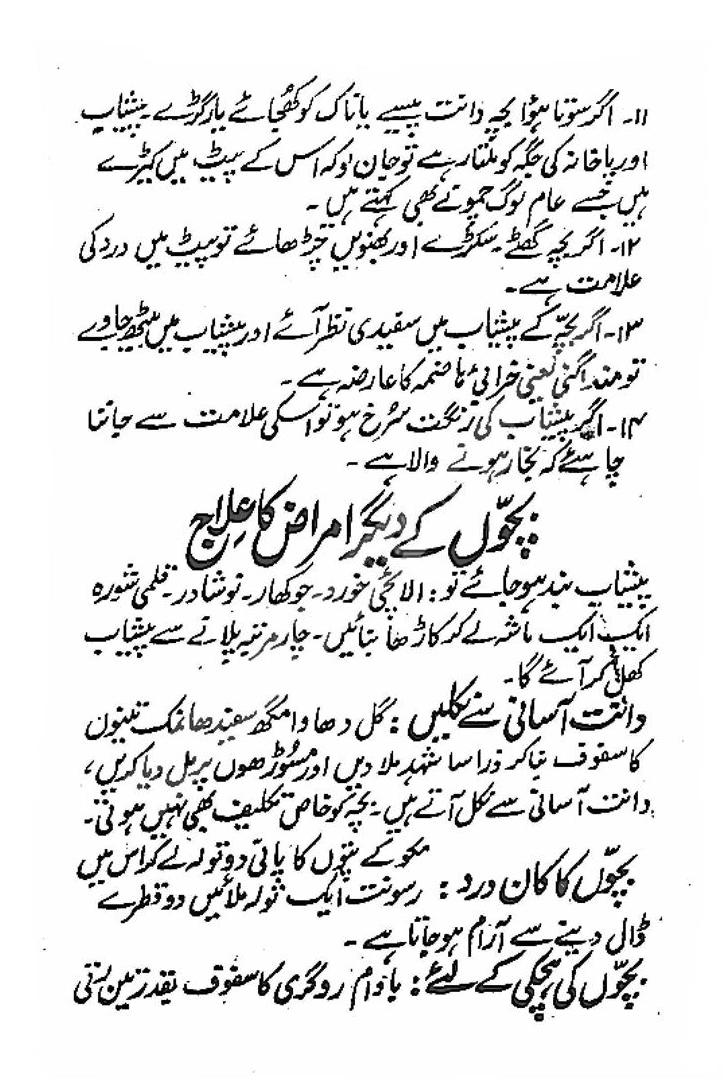 ۱۱۔ اگر سوتا ہوا بچہ دانت پیسے یا ناک کو کھُجائے یا رگڑے۔ پیشاب
اور پاخانہ کی جگہ کو ملتا رہے تو جان لو کہ اس کے پیٹ میں کیڑے
ہیں جسے عام لوگ چمونے بھی کہتے ہیں۔
۱۲۔ اگر بچہ گھٹنے سکوڑے اور بھنویں چڑھائے تو پیٹ میں درد کی
علامت ہے۔
۱۳۔ اگر بچّے کے پیشاب میں سفیدی نظر آئے اور پیشاب میں بیٹھ جاوے
تو منداگنی یعنی خرابیٔ ہاضمہ کا عارضہ ہے۔
۱۴۔ اگر پیشاب کی رنگت سُرخ ہو تو اسکی علامت سے جاننا
چاہئے کہ بخار ہونے والا ہے۔
بچّوں کے دیگر امراض کا عِلاج
پیشاب بند ہو جائے تو: الائچی خورد۔ جوکھار۔ نوشادر۔ قلمی شورہ
ایک ایک ماشہ لے کر کاڑھا بنائیں۔ چار مرتبہ پلانے سے پیشاب
کھل کر آئے گا۔
دانت آسانی سے نکلیں: گل دھاوا مگھ سیندھا نمک تینوں
کا سفوف بنا کر ذرا سا شہد ملا دیں اور مسوڑھوں پر مل دیا کریں،
دانت آسانی سے نکل آتے ہیں۔ بچہ کو خاص تکلیف بھی نہیں ہوتی۔
بچّوں کا کان درد: مکو کے پتوں کا پانی دو تولہ لے کر اس میں
رسونت ایک تولہ ملائیں دو قطرے
ڈال دینے سے آرام ہو جاتا ہے۔
بچّوں کی ہچکی کے لئے: بادام روگری کا سفوف بقدر تین رتی